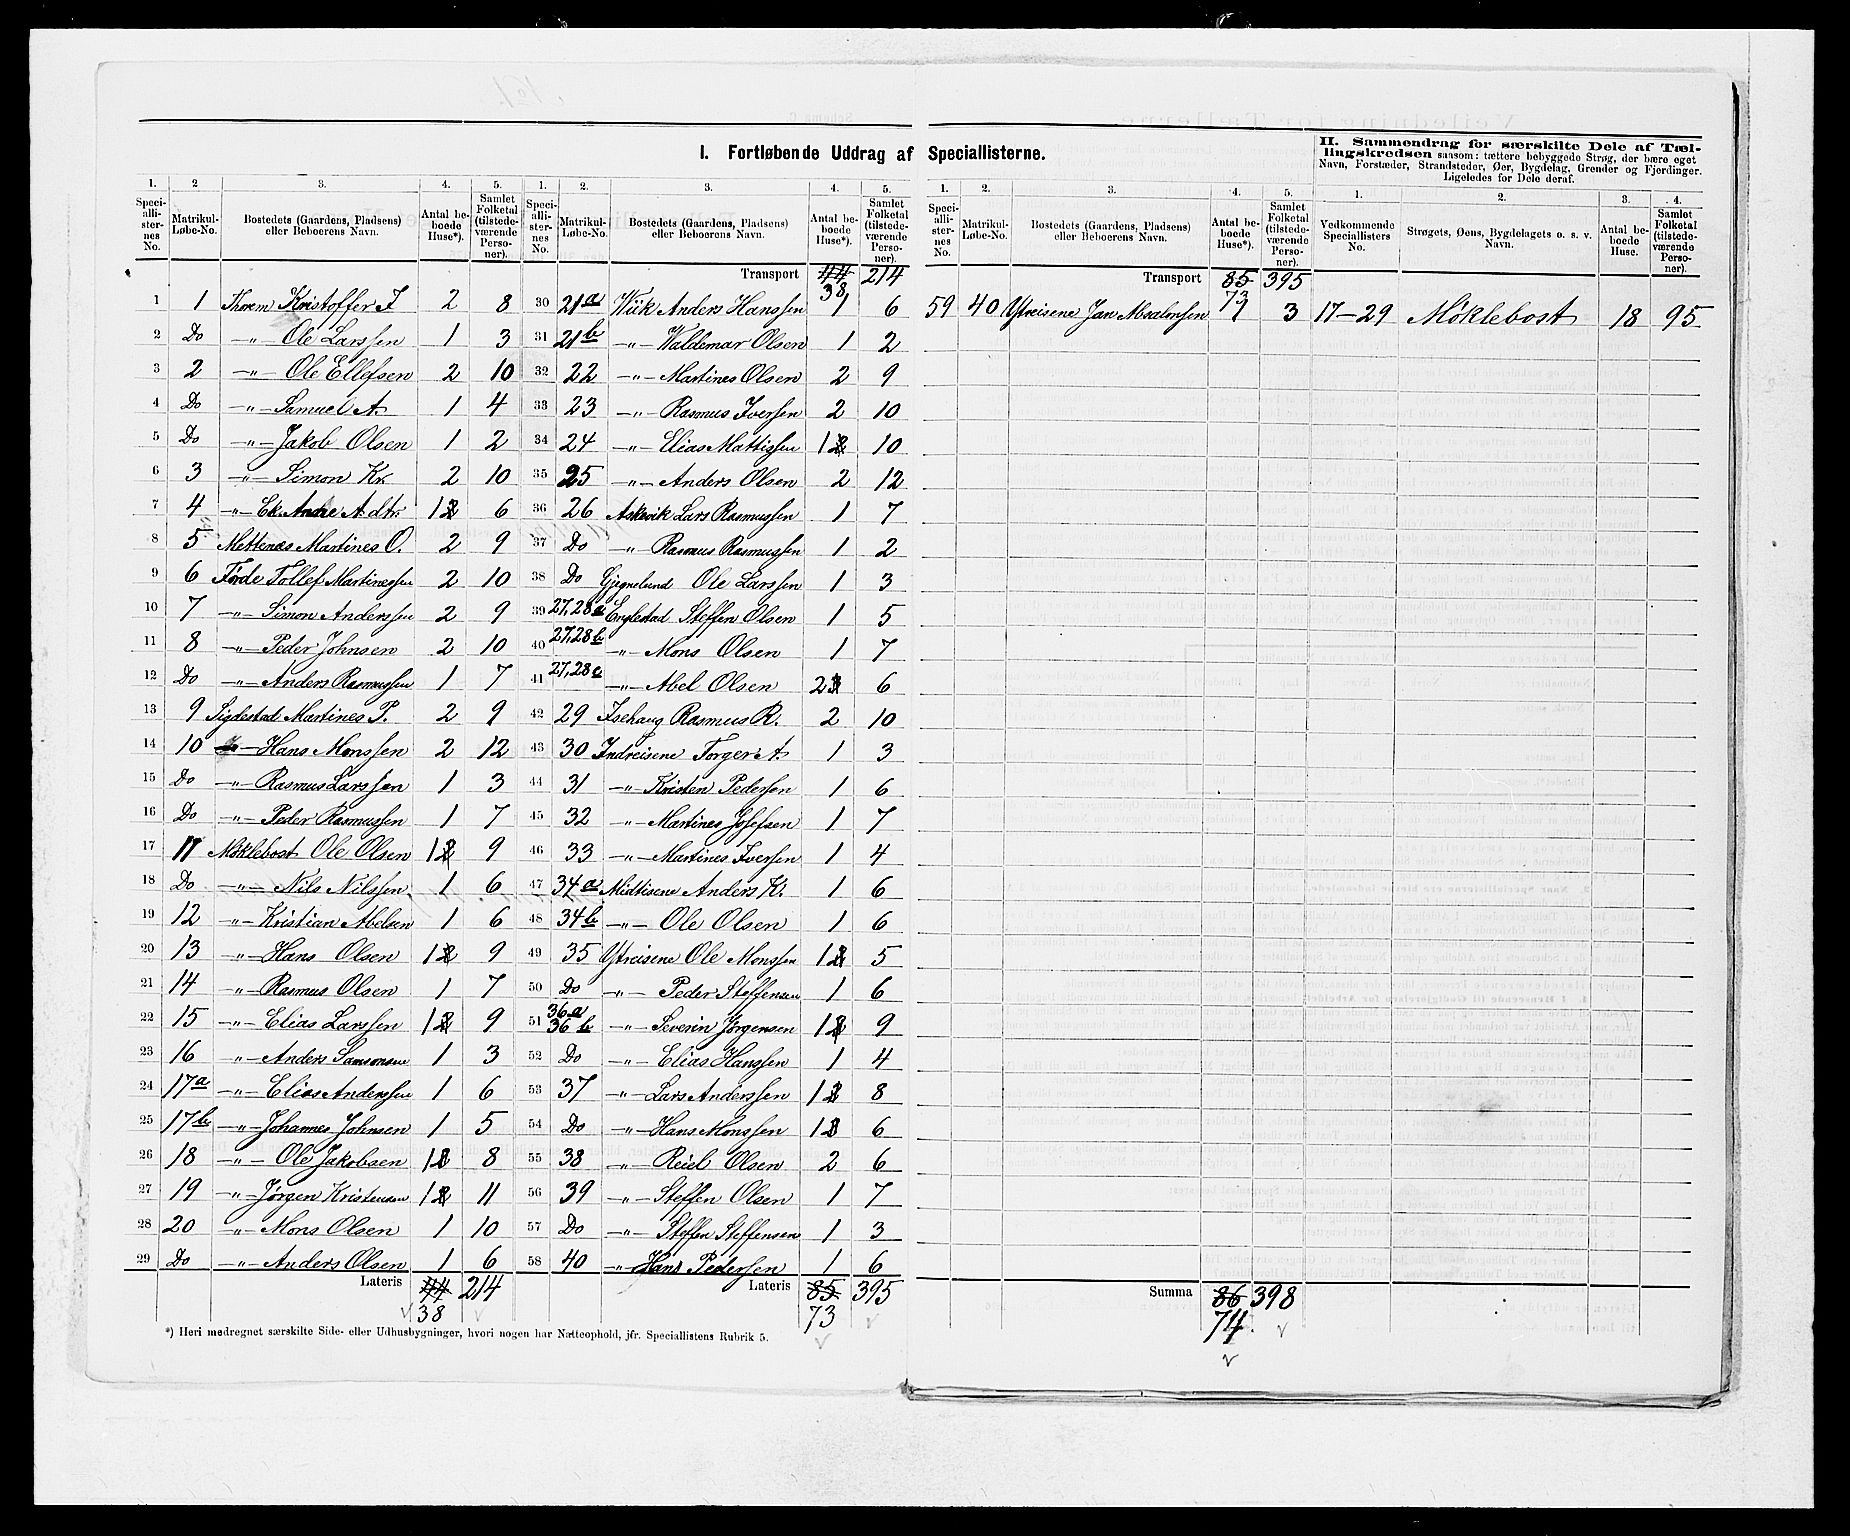 I. Fortløbende Uddrag af Speciallisterne.
II. Sammendrag for særskilte Dele af Tællingskredsen saasom: tættere bebyggede Strøg, der bære eget Navn, Forstæder, Strandsteder, Øer, Bygdelag, Grender og Fjerdinger. Ligeledes for Dele deraf.
1. 2 3. 4. 5.
Speciallisternes No. Matrikul-Løbe-No. Bostedets (Gaardens, Pladsens) eller Beboerens Navn. Antal beboede Huse*). Samlet Folketal (tilstedeværende Personer).
1 1 Thorem Kristoffer I 2 8
2 Do —"— Ole Larssen 1 3
3 2 —"— Ole Ellefsen 2 10
4 Do —"— Samuel A. 1 4
5 Do —"— Jakob Olsen 1 2
6 3 —"— Simon Kr. 2 10
7 4 —"— Ek. Andre A. dtr. 1 6
8 5 Mettenes Martines O. 2 9
9 6 Förde Tollef Martinessen 2 10
10 7 —"— Simon Anderssen 2 9
11 8 —"— Peder Johnsen 2 10
12 Do —"— Anders Rasmussen 1 7
13 9 Sigdestad Martines P. 2 9
14 10 —"— Hans Monssen 2 12
15 Do —"— Rasmus Larssen 1 3
16 Do —"— Peder Rasmussen 1 7
17 11 Möklebost Ole Olsen 1 9
18 Do —"— Nils Nilssen 1 6
19 12 —"— Kristian Abelsen 1 6
20 13 —"— Hans Olsen 1 9
21 14 —"— Rasmus Olsen 1 7
22 15 —"— Elias Larssen 1 9
23 16 —"— Anders Samsonsen 1 3
24 17a —"— Elias Anderssen 1 6
25 17b —"— Johannes Johnsen 1 5
26 18 —"— Ole Jakobsen 1 8
27 19 —"— Jörgen Kristensen 1 11
28 20 —"— Mons Olsen 1 10
29 Do —"— Anders Olsen 1 6
Lateris 44 214
38
*) Heri medregnet særskilte Side- eller Udhusbygninger, hvori nogen har Natteophold, jfr. Speciallistens Rubrik 5.
1. 2. 3. 4. 5.
Speciallisternes No. Matrikul-Løbe-No. Bostedets (Gaardens, Pladsens) eller Beboerens Navn. Antal beboede Huse*). Samlet Folketal (tilstedeværende Personer).
Transport 44 214
38
30 21a Wiik Anders Hanssen 1 6
31 21b —"— Waldemar Olsen 1 2
32 22 —"— Martines Olsen 2 9
33 23 —"— Rasmus Iverssen 2 10
34 24 —"— Elias Mattissen 1 10
35 25 —"— Anders Olsen 2 12
36 26 Askevik Lars Rasmussen 1 7
37 Do —"— Rasmus Rasmussen 1 2
38 Do Gjegnelund Ole Larssen 1 3
39 27,28a Englestad Steffen Olsen 1 5
40 27,28b —"— Mons Olsen 1 7
41 27,28c —"— Abel Olsen 2 6
42 29 Isehaug Rasmus R. 2 10
43 30 Indreisene Torger A. 1 3
44 31 —"— Kristen Pedersen 1 6
45 32 —"— Martines Josefsen 1 7
46 33 —"— Martines Iverssen 1 4
47 34a Midtisene Anders K. 1 6
48 34b —"— Ole Olsen 1 6
49 35 Ytreisene Ole Monssen 1 5
50 Do —"— Peder Steffensen 1 6
51 36a 36b —"— Severin Jörgensen 1 9
52 Do —"— Elias Hanssen 1 4
53 37 —"— Lars Anderssen 1 8
54 Do —"— Hans Monssen 1 6
55 38 —"— Reiel Olsen 2 6
56 39 —"— Steffen Olsen 1 7
57 Do —"— Steffen Steffensen 1 3
58 40 —"— Hans Pederssen 1 6
Lateris 85 395
73
1. 2. 3. 4. 5.
Speciallisternes No. Matrikul-Løbe-No. Bostedets (Gaardens, Pladsens) eller Beboerens Navn. Antal beboede Huse*). Samlet Folketal (tilstedeværende Personer).
Transport 85 395
73
59 40 Ytreisene Jan Absalonsen 1 3
Summa 86 398
74.
1. 2. 3. 4.
Vedkommende Speciallisters No. Strøgets, Øens, Bygdelagets o. s. v. Navn. Antal beboede Huse. Samlet Folketal (tilstedeværende Personer).
17–29 Möklebost 18 95